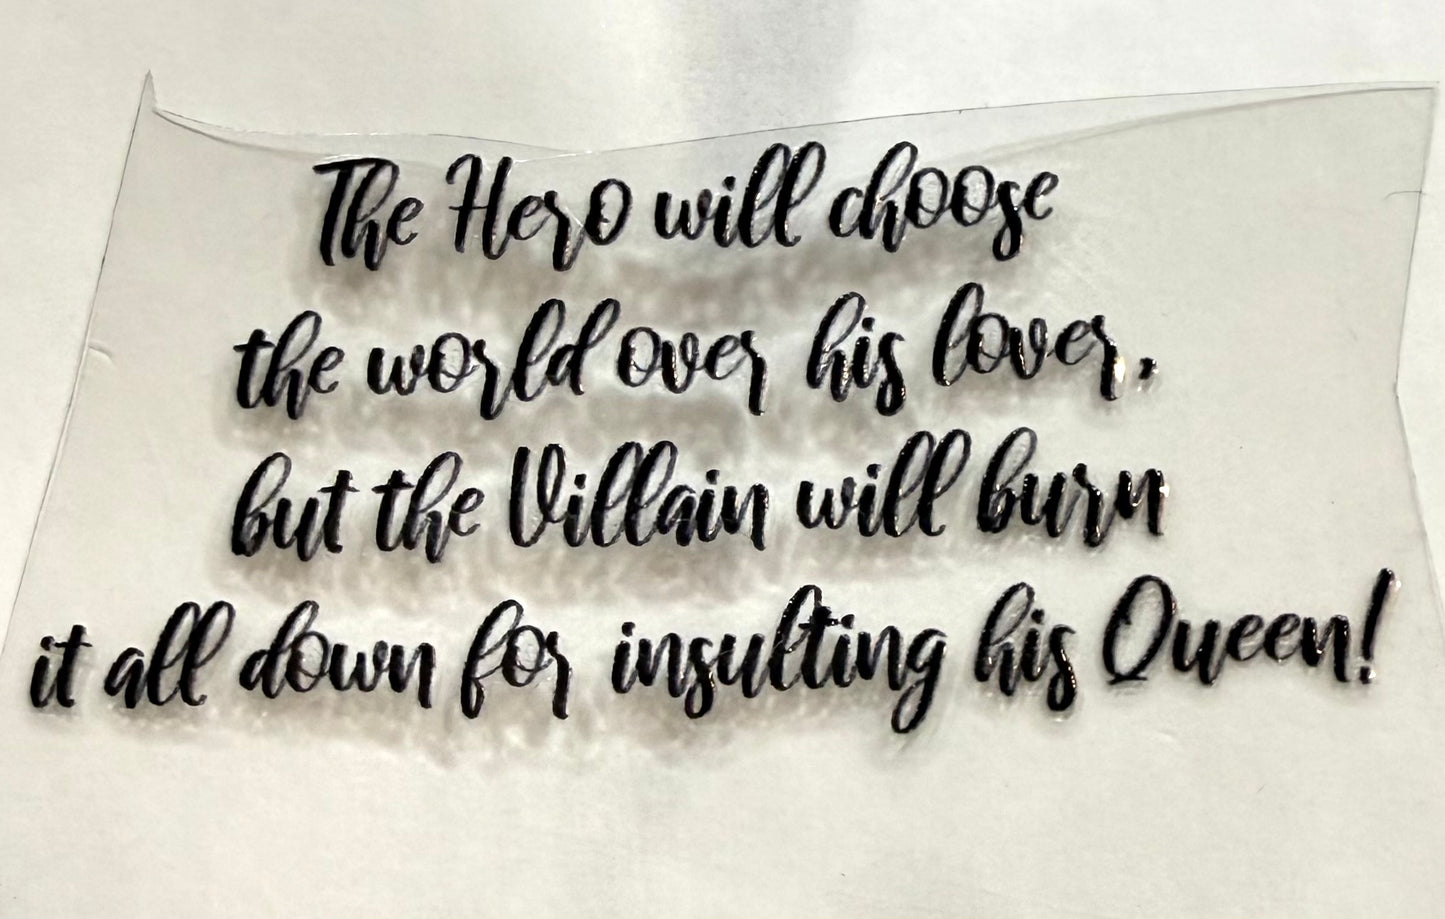 The Hero will choose
the world over his lover,
but the Villain will burn
it all down for insulting his Queen!